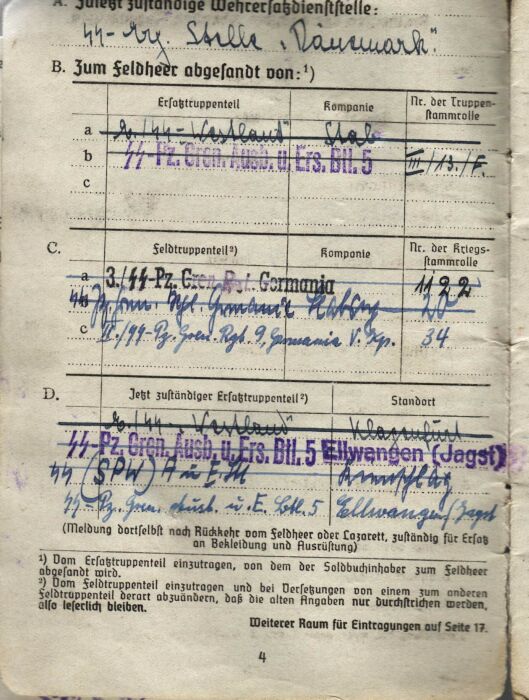 A. Zuletzt zuständige Wehrersatzdienststelle:
SS-Erg. Stelle „Dänemark".
B. Zum Feldheer abgesandt von:¹)
Ersatztruppenteil Kompanie Nr. der Truppenstammrolle
a E./SS-„Westland" Stab
b SS-Pz. Gren. Ausb. u. Ers. Btl. 5 III/13./F.
c
C. Feldtruppenteil²) Kompanie Nr. der Kriegsstammrolle
a 3./SS-Pz. Gren. Rgt. Germania 1122
b SS Pz. Gren. Rgt. Germania 20
c II./SS-Pz. Gren. Rgt. 9, Germania V. Kp. 34
D. Jetzt zuständiger Ersatztruppenteil²) Standort
E./SS-„Westland" Klagenfurt
SS-Pz. Gren. Ausb. u. Ers. Btl. 5 Ellwangen (Jagst)
SS (SPW) A u E.
SS-Pz. Gren. Ausb. u. E. Btl. 5 Ellwangen/Jagst
(Meldung dortselbst nach Rückkehr vom Feldheer oder Lazarett, zuständig für Ersatz
an Bekleidung und Ausrüstung)
¹) Vom Ersatztruppenteil einzutragen, von dem der Soldbuchinhaber zum Feldheer
abgesandt wird.
²) Vom Feldtruppenteil einzutragen und bei Versetzungen von einem zum anderen
Feldtruppenteil derart abzuändern, daß die alten Angaben nur durchstrichen werden,
also leserlich bleiben.
Weiterer Raum für Eintragungen auf Seite 17.
4